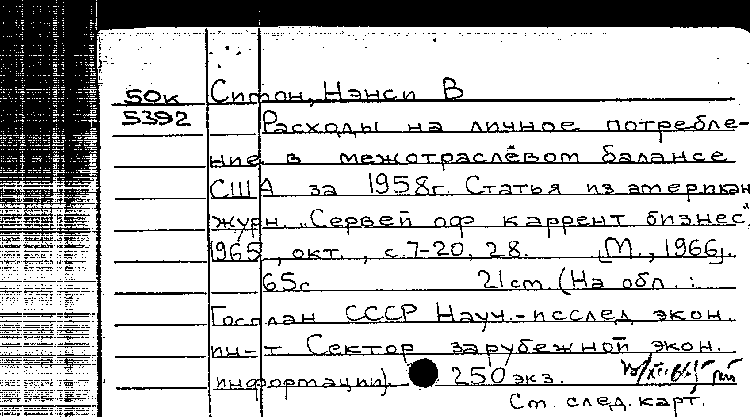 50к Симон, Нэнси В
5392 Расходы на личное потребле-
ние в межотраслевом балансе
США за 1958г. Статья из американ
журн. „Сервей оф каррент бизнес",
1965, окт., с.7-20, 28. [М., 1966].
65с 21см. (На обл.:
Госплан СССР Науч.-исслед экон.
ин-т Сектор зарубежной экон.
информации). 250 экз.
См. след. карт.